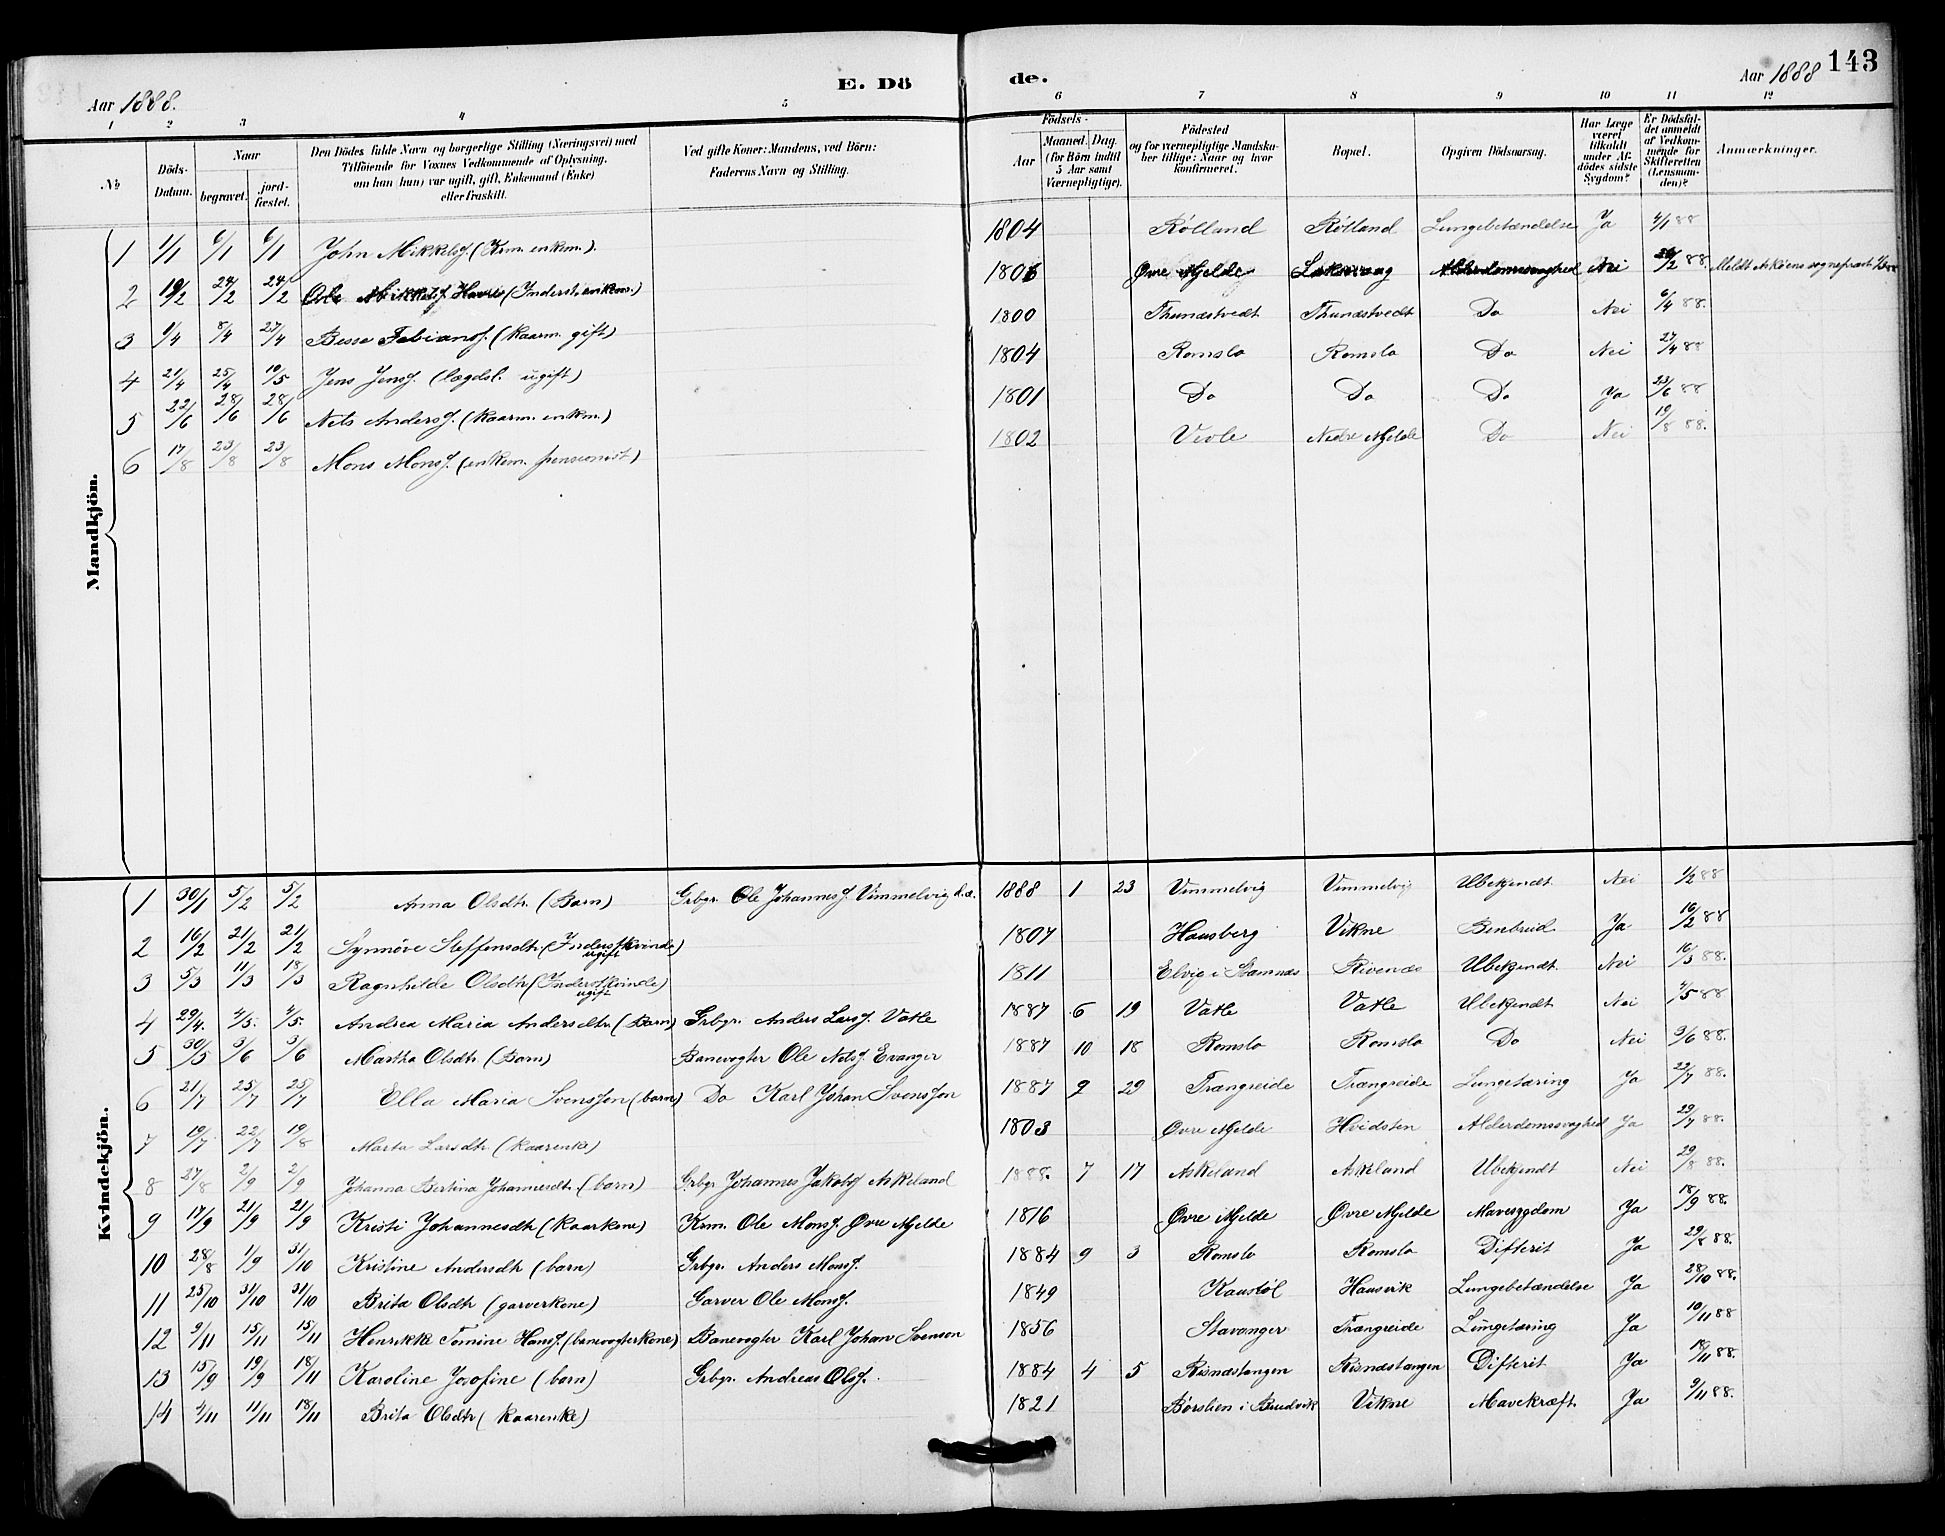 E. Dö de.
143
Aar 1888.
Aar 1888
1 2 3 4 5 6 7 8 9 10 11 12
№
Döds-Datum.
Naar
begravet.
jord-fæstet.
Den Dödes fulde Navn og borgerlige Stilling (Næringsvei) med Tilföiende for Voxnes Vedkommende af Oplysning, om han (hun) var ugift, gift, Enkemand (Enke) eller fraskilt.
Ved gifte Koner: Mandens, ved Börn: Faderens Navn og Stilling.
Födsels-
Aar
Maaned. Dag.
(for Börn indtil 5 Aar samt Værnepligtige).
Födested og for værnepligtige Mandskaber tillige: Naar og hvor konfirmeret.
Bopæl.
Opgiven Dödsaarsag.
Har Læge været tilkaldt under Afdödes sidste Sygdom?
Er Dödsfaldet anmeldt af Vedkommende for Skifteretten (Lensmanden)?
Anmærkninger.
Mandkjön.
1 1/1 6/1 6/1 John Mikkelsf. (Krm. enkm.) 1804 Rølland Rølland Lungebetændelse Ja 4/1 88
2 19/2 24/2 24/2 Ole Mikkelsf. Havre (Inderst. enkem.) 1806 Øvre Mjelde Laksevaag Alderdomssvaghed Nei 20/2 88. Meldt Askøens sogneprest
3 1/4 8/4 27/4 Besse Fabiansf. (kaarm. gift) 1800 Thunæstvedt Thunæstvedt Do Nei 6/4 88.
4 21/4 25/4 10/5 Jens Jensf. (lægdsl. ugift) 1804 Romslo Romslo Do Nei 27/4 88
5 22/6 28/6 28/6 Nils Andersf. (kaarm. enkm.) 1801 Do Do Do Ja 23/6 88
6 17/8 23/8 23/8 Mons Monsf. (enkem. pensionist) 1802 Vevle Nedre Mjelde Do Nei 19/8 88.
Kvindekjön.
1 30/1 5/2 5/2 Anna Olsdtr. (Barn) Grbgr. Ole Johannesf. Vimmelvig d.æ. 1888 1 23 Vimmelvig Vimmelvig Ubekjendt Nei 1/2 88
2 16/2 21/2 21/2 Synnöve Steffensdtr. (Inderstkvinde) ugift 1807 Hausberg Vikne Benbrud Ja 16/2 88
3 5/3 11/3 18/3 Ragnhilde Olsdtr (Inderstkvinde) ugift 1811 Elvig i Stamnæs Rivenæs Ubekjendt Nei 16/3 88.
4 29/4. 4/5. 4/5. Andrea Maria Andersdtr. (Barn) Grbgr. Anders Larsf. Vatle 1887 6 19 Vatle Vatle Ubekjendt Nei 4/5 88
5 30/5 3/6 3/6 Martha Olsdtr (Barn) Banevogter Ole Nilsf. Evanger 1887 10 18 Romslo Romslo Do Nei 3/6 88.
6 21/7 25/7 25/7 Ella Maria Svensson (barn) Do Karl Johan Svensson 1887 9 29 Trangreide Trangreide Lungetæring Ja 22/7 88.
7 19/7 22/7 19/8 Marta Larsdtr (kaarenke) 1803 Øvre Mjelde Hvidsten Alderdomssvaghed Ja 29/7 88.
8 27/8 2/9 2/9 Johanna Bertina Johannesdtr. (barn) Grbgr Johannes Jakobsf Askeland 1885. 7 17 Askeland Askeland Ubekjendt Nei 29/8 88.
9 17/9 21/9 21/9 Kristi Johannesdtr (kaarkone) Krm. Ole Monsf. Øvre Mjelde 1816 Øvre Mjelde Øvre Mjelde Mavesygdom Ja 18/9 88.
10 28/8 1/9 31/10 Kristine Andersdtr (barn) Grbgr. Anders Monsf. 1884 9 3 Romslo Romslo Difterit Ja 29/8 88.
11 25/10 31/10 31/10 Brita Olsdtr (garverkone) Garver Ole Monsf. 1849 Hausvik Lungebetændelse Ja 28/10 88.
12 9/11 15/11 15/11 Henrikke Tomine Hansf. (banevogterkone) Banevogter Karl Johan Svenson 1856 Stavanger Trangreide Lungetæring Ja 10/11 88
13 15/9 19/9 18/11 Karoline Josefine (barn) Grbgr. Andreas Olsf. 1884 4 5 Risnæstangen Risnæstangen Difterit Ja 18/11 88.
14 4/11 11/11 18/11 Brita Olsdtr (kaarenke) 1821 Børslien i Brudvik Vikne Mavekræft Ja 9/11 88.